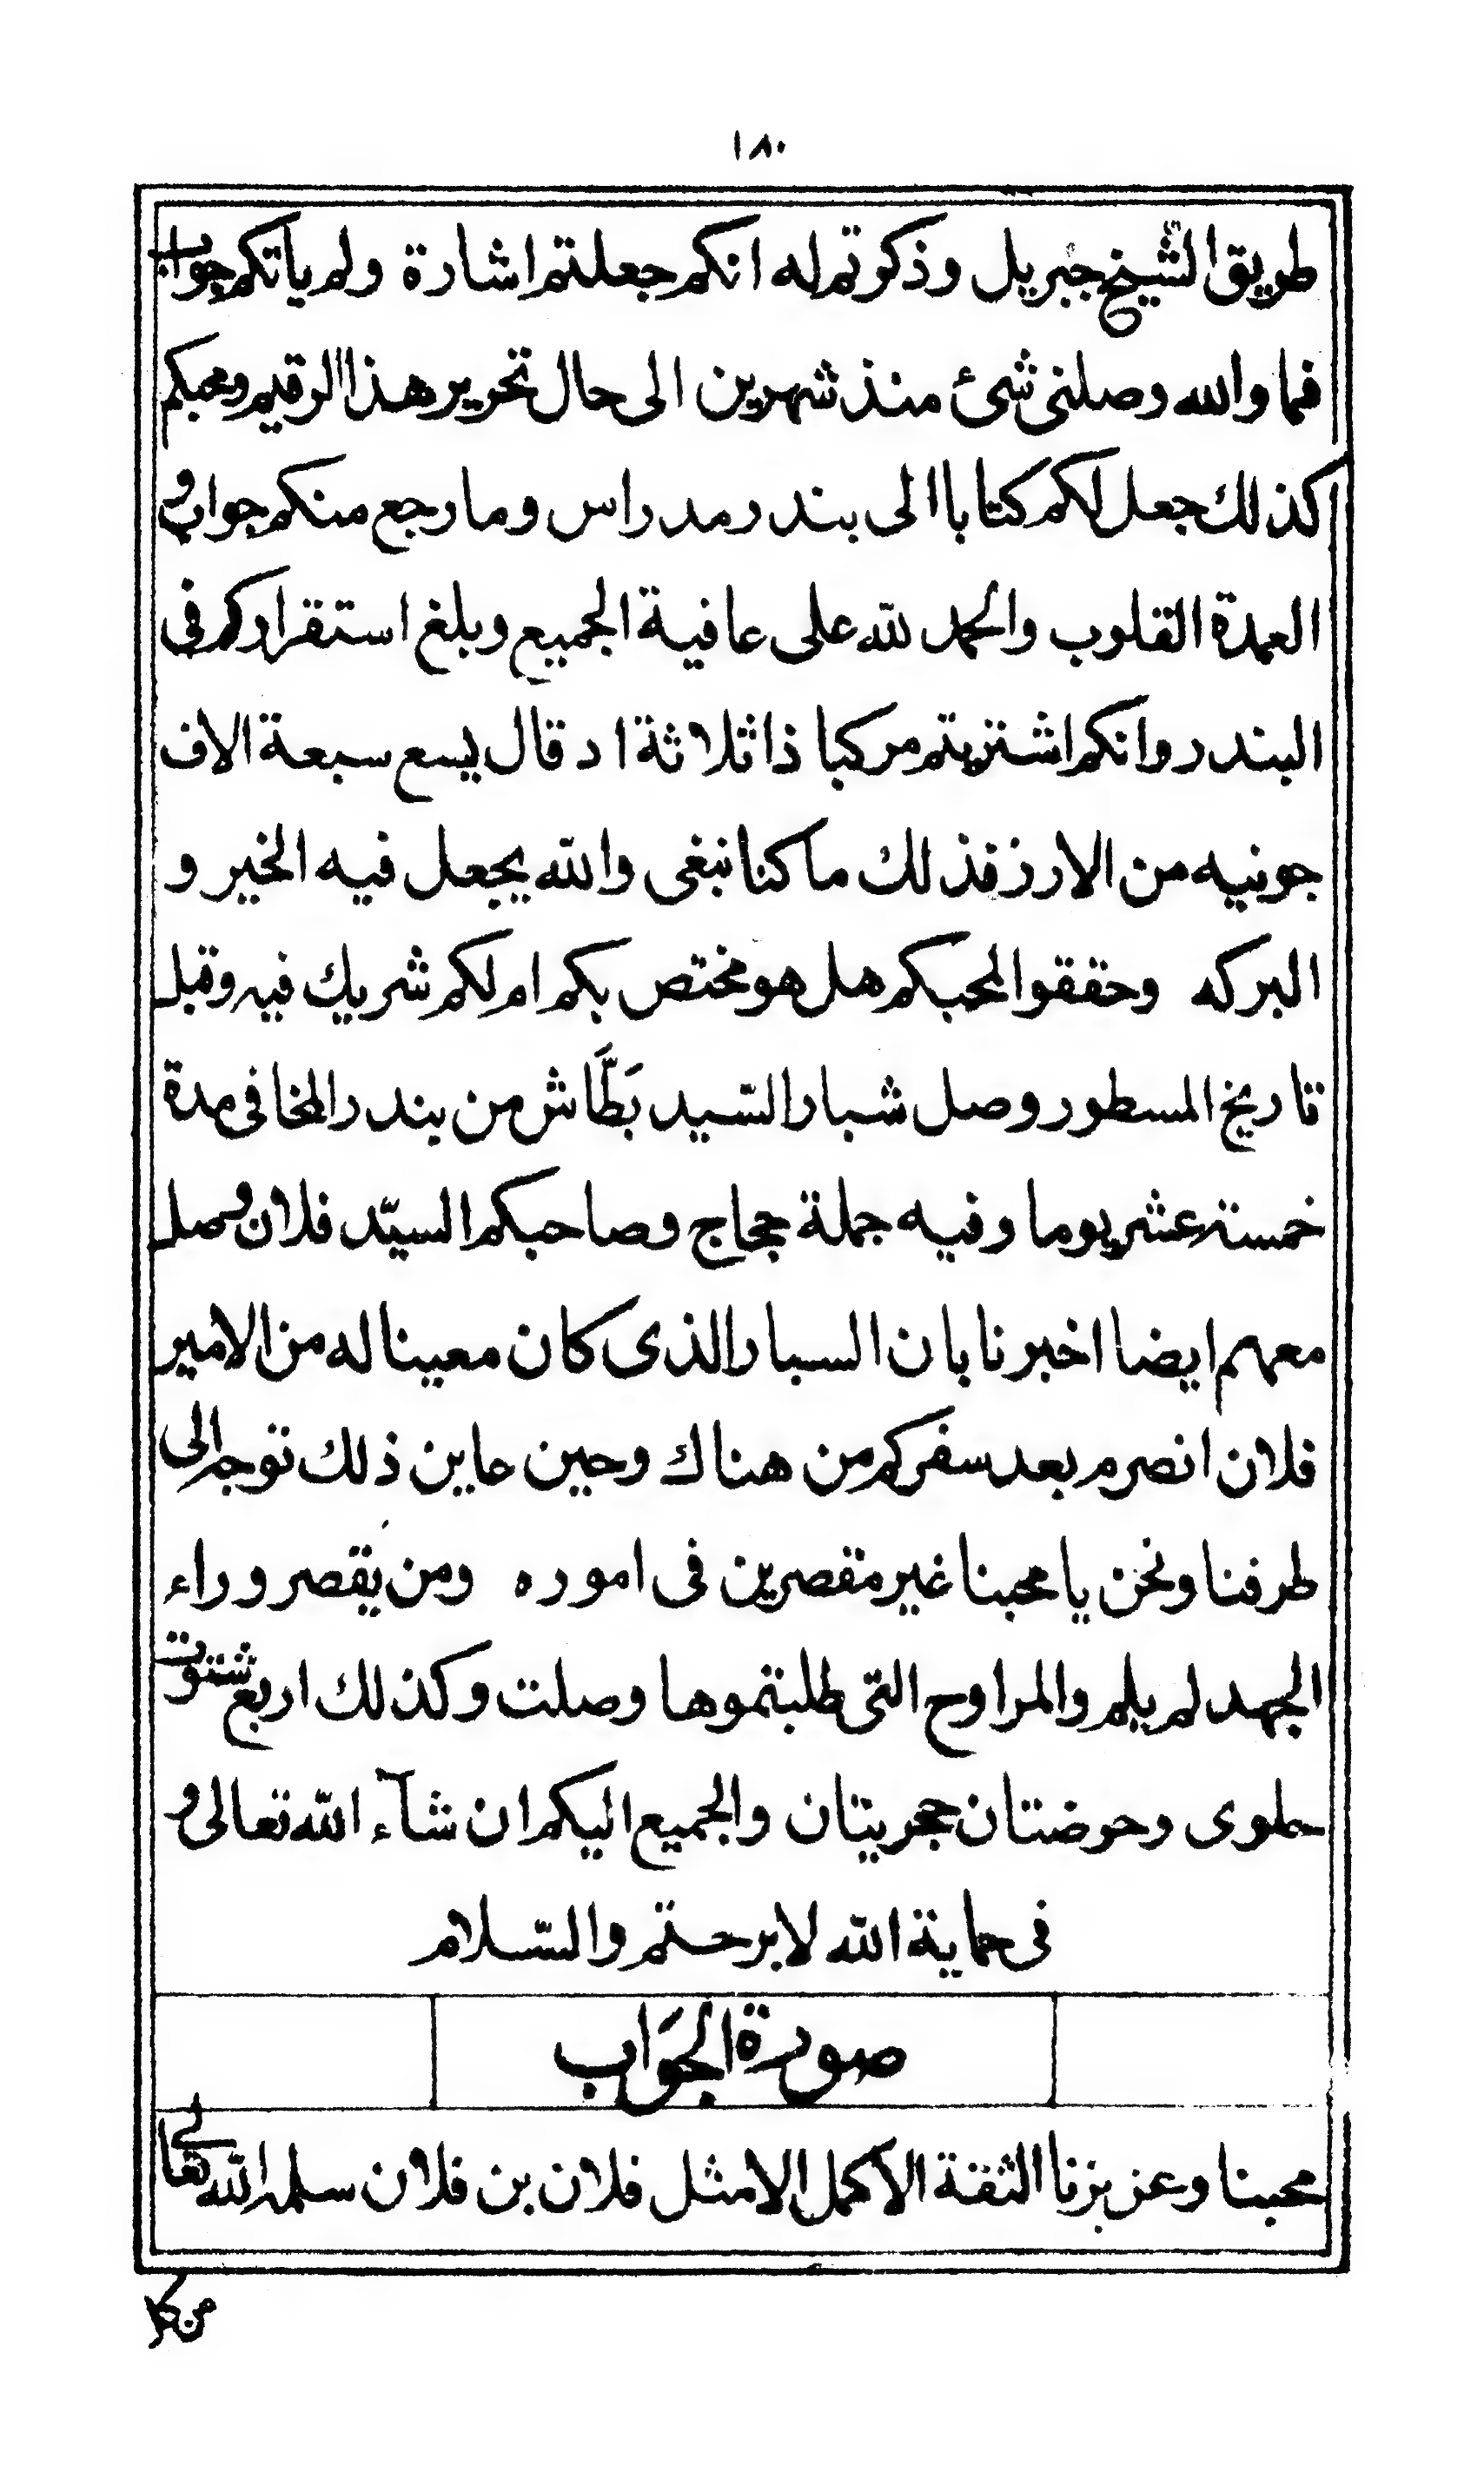 ١٨٠
طريق الشيخ جبريل وذكرتم له انكم جعلتم اشارة ولم ياتكم جوابه
فما والله وصلنى شئ منذ شهرين الى حال تحرير هذا الرقيم ومحبكم
كذلك جعل لكم كتابا الى بندر مدراس وما رجع منكم جواب و
العمدة القلوب والحمد لله على عافية الجميع وبلغ استقراركم فى
البندر وانكم اشتريتم مركبا ذا ثلاثة ادقال يسع سبعة الاف
جونيه من الارز فذلك ما كنا نبغى والله يجعل فيه الخير و
البركه وحققوا لمحبكم هل هو مختص بكم ام لكم شريك فيه وقبل
تاريخ المسطور وصل شبار السّيد بَطَّاش من بندر المخا فى مدة
خمسة عشر يوما وفيه جملة حجاج وصاحبكم السيّد فلان وصل
معهم ايضا اخبرنا بان السبار الذى كان معينا له من الامير
فلان انصرم بعد سفركم من هناك وحين عاين ذلك توجه الى
طرفنا ونحن يا محبنا غير مقصرين فى اموره ومن يقصر وراء
الجهد لم يلم والمراوح التى طلبتموها وصلت وكذلك اربع شتوت
حلوى وحرضتان حجريتان والجميع اليكم ان شآء الله تعالى و
فى حماية الله لا برحتم والسّلام
صورة الجَوَاب
محبنا وعزيزنا الثقة الاكمل الامثل فلان بن فلان سلمه الله تعالى
من كل